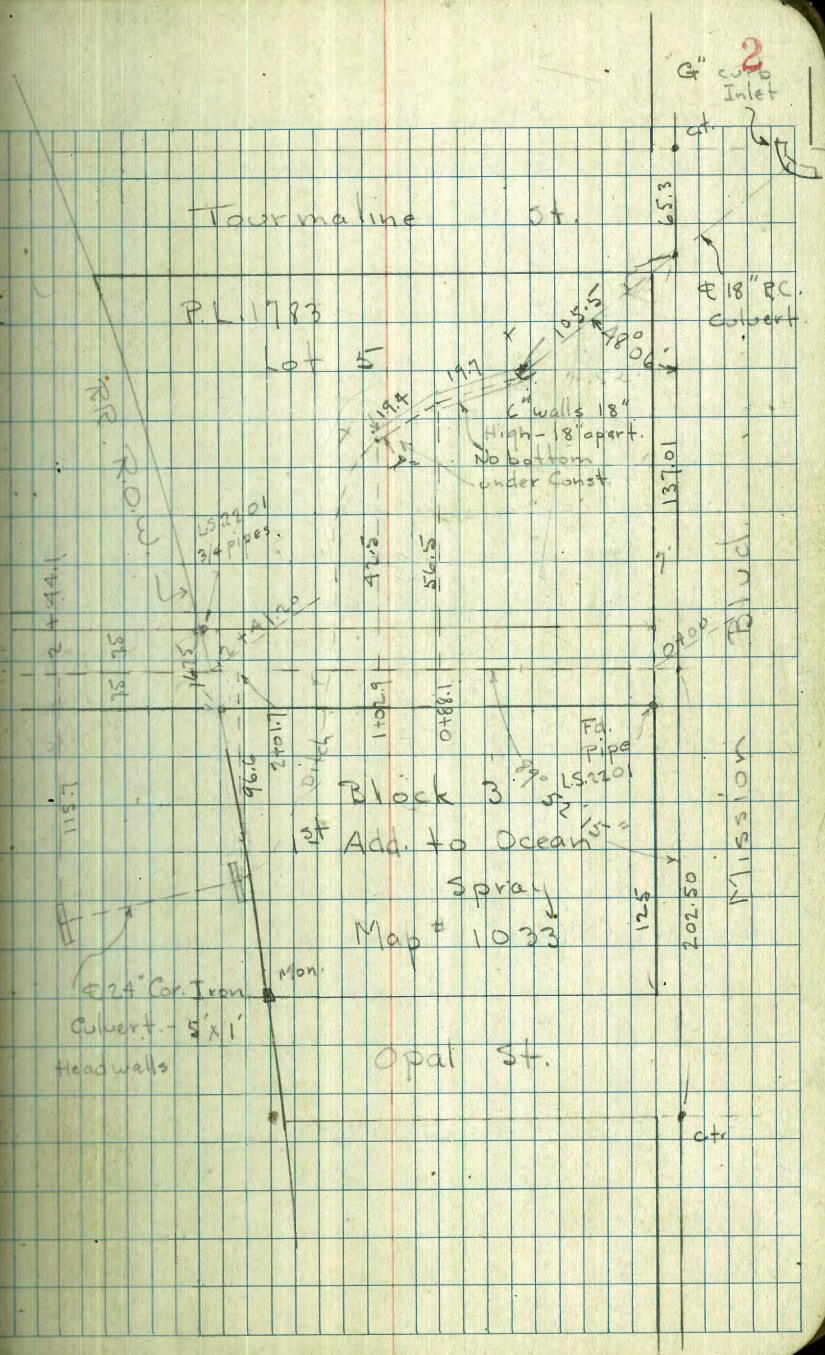 2
G" curb
Inlet
ct.
65.3
Tourmaline St.
P.L. 1783
Lot 5
℄ 18" R.C.
Culvert
105.5
48°
06'
19.7
19.4
6" walls 18"
High - 18" apart.
No bottom
under Const.
137.01
RR
R.O.W.
LS.2201
3/4 pipes.
42.5
56.5
2+44.1
75
75
16.75
2+41.20
0+00
Blvd.
Mission
96.6
2+01.7
Ditch
1+02.9
0+88.1
Fd.
Pipe
LS.2201
Block 3
1st Add. to Ocean
Spray
Map # 1033
115.7
125
202.50
Mon.
℄ 24" Cor. Iron
Culvert - 5'x1'
Headwalls
Opal St.
ctr